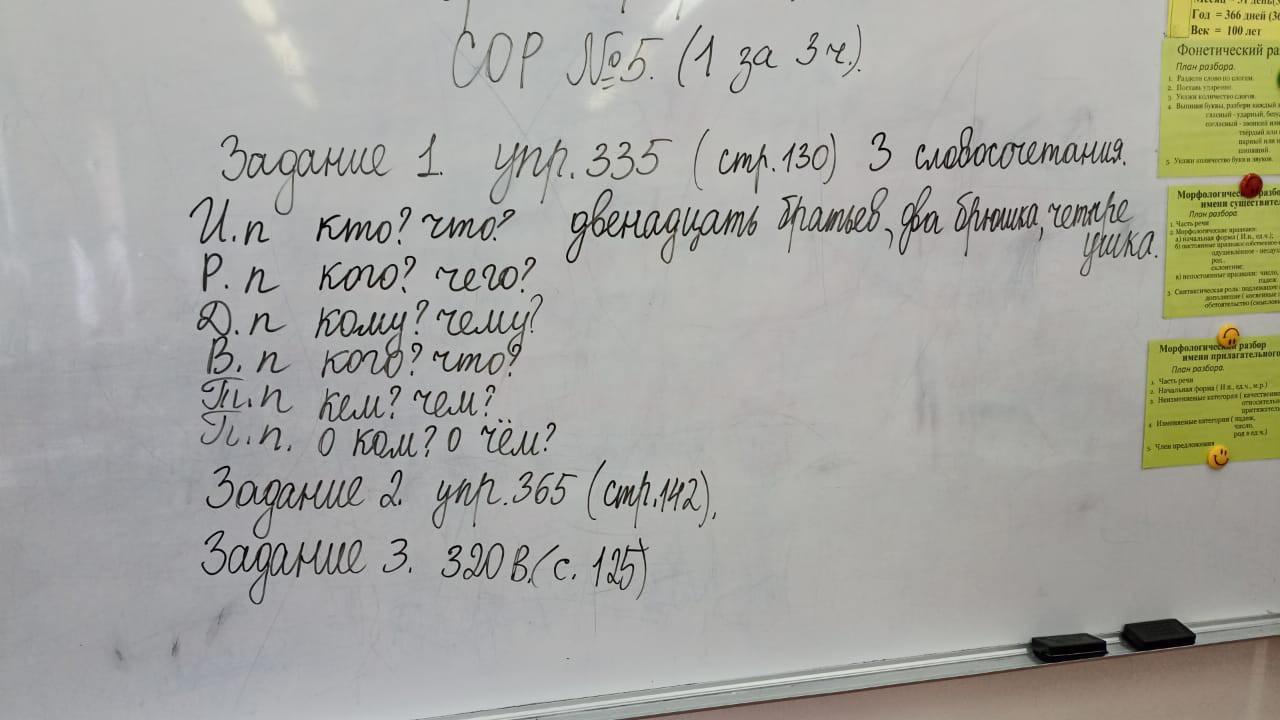 СОР №5. (1 за 3 ч.).
Задание 1. упр. 335 (стр. 130) 3 словосочетания.
И. п кто? что? двенадцать братьев, два брюшка, четыре
ушка.
Р. п кого? чего?
Д. п кому? чему?
В. п кого? что?
Т. п кем? чем?
П. п. о ком? о чём?
Задание 2. упр. 365 (стр. 142).
Задание 3. 320 В. (с. 125)
Год = 366 дней
Век = 100 лет
Фонетический
План разбора.
1. Раздели слово по слогам.
2. Поставь ударение.
3. Укажи количество слогов.
4. Выпиши буквы, разбери каждый
гласный - ударный,
согласный - звонкий
твёрдый или
парный или
шипящий.
5. Укажи количество букв и звуков.
имени
План разбора.
1. Часть речи
2. Морфологические признаки:
а) начальная форма ( И.п., ед.ч.);
род,
склонение;
в) непостоянные признаки: число,
падеж
3. Синтаксическая роль: подлежащее
дополнение ( косвенные
обстоятельство
разбор
имени прилагательного
План разбора.
1. Часть речи
2. Начальная форма ( И.п., ед.ч., м.р.)
3. Неизменяемые категории (
4. Изменяемые категории ( падеж,
число,
род в ед.ч.)
5. Член предложения